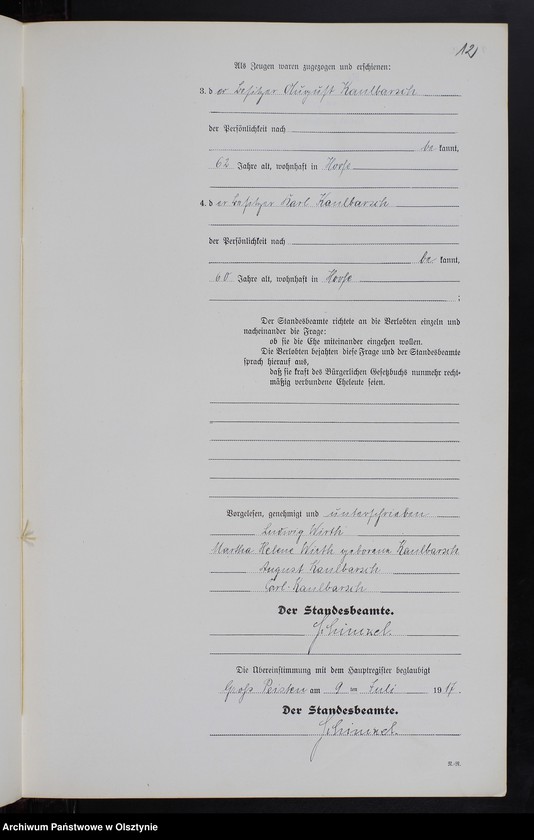 12
Als Zeugen waren zugezogen und erschienen:
3. der Besitzer August Kaulbarsch
der Persönlichkeit nach
be kannt,
62 Jahre alt, wohnhaft in
4. der Besitzer Karl Kaulbarsch
der Persönlichkeit nach
be kannt,
60 Jahre alt, wohnhaft in
;
Der Standesbeamte richtete an die Verlobten einzeln und
nacheinander die Frage:
ob sie die Ehe miteinander eingehen wollen.
Die Verlobten bejahten diese Frage und der Standesbeamte
sprach hierauf aus,
daß sie kraft des Bürgerlichen Gesetzbuchs nunmehr recht-
mäßig verbundene Eheleute seien.
Vorgelesen, genehmigt und unterschrieben
Ludwig Wirth
Martha Helene Wirth geborene Kaulbarsch
August Kaulbarsch
Carl Kaulbarsch
Der Standesbeamte.
Die Übereinstimmung mit dem Hauptregister beglaubigt
Groß Peisten am 9 ten Juli 19 17.
Der Standesbeamte.
N.-R.
Archiwum Państwowe w Olsztynie